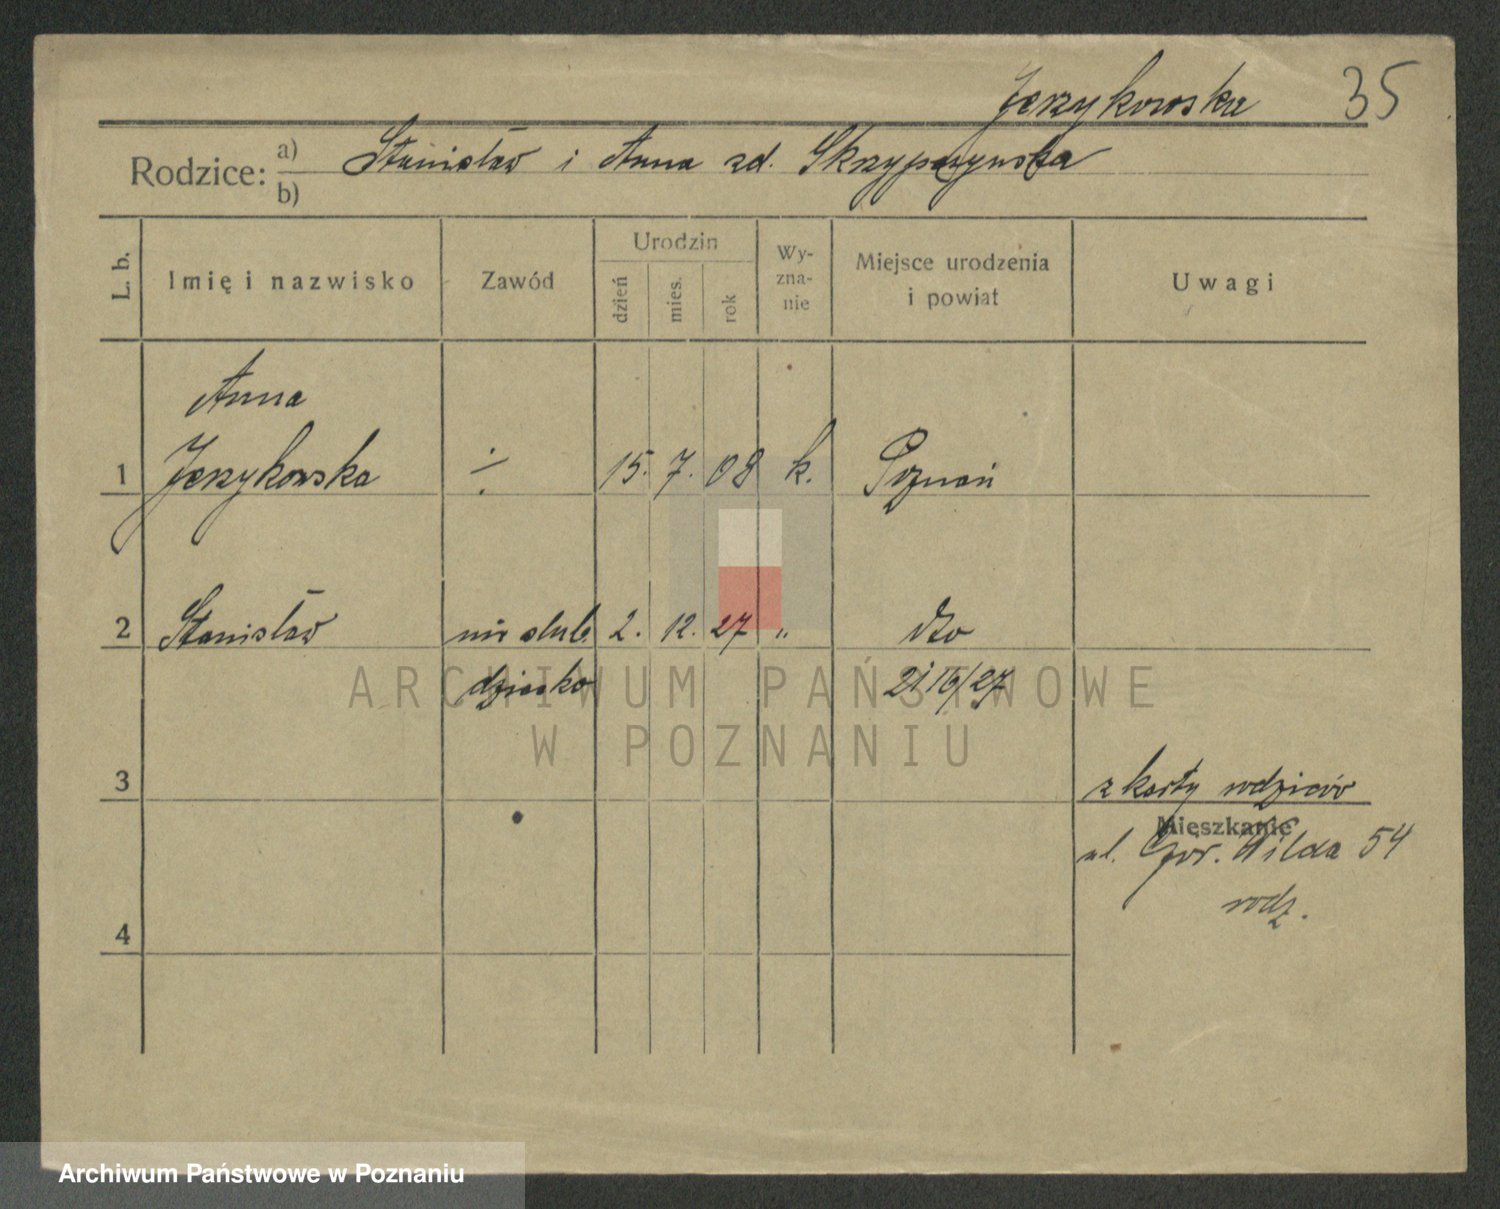 Jerzykowska 35
Rodzice: a) Stanisław i Anna zd. Skrzypczyńska
b)
L. b. Imię i nazwisko Zawód Urodzin dzień mies. rok Wy-zna-nie Miejsce urodzenia i powiat Uwagi
Anna
1 Jerzykowska ÷ 15. 7. 08 k. Poznań
2 Stanisław nieślub. 2. 12. 27 " dto
dziecko
3 z karty rodziców
Mieszkanie
ul. Gór. Wilda 54
rodz.
4
ARCHIWUM PAŃSTWOWE
W POZNANIU
Archiwum Państwowe w Poznaniu